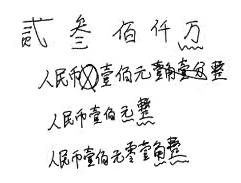 贰 叁 佰 仟 万
人民币壹佰元壹角壹分整
人民币壹佰元整
人民币壹佰元零壹角整